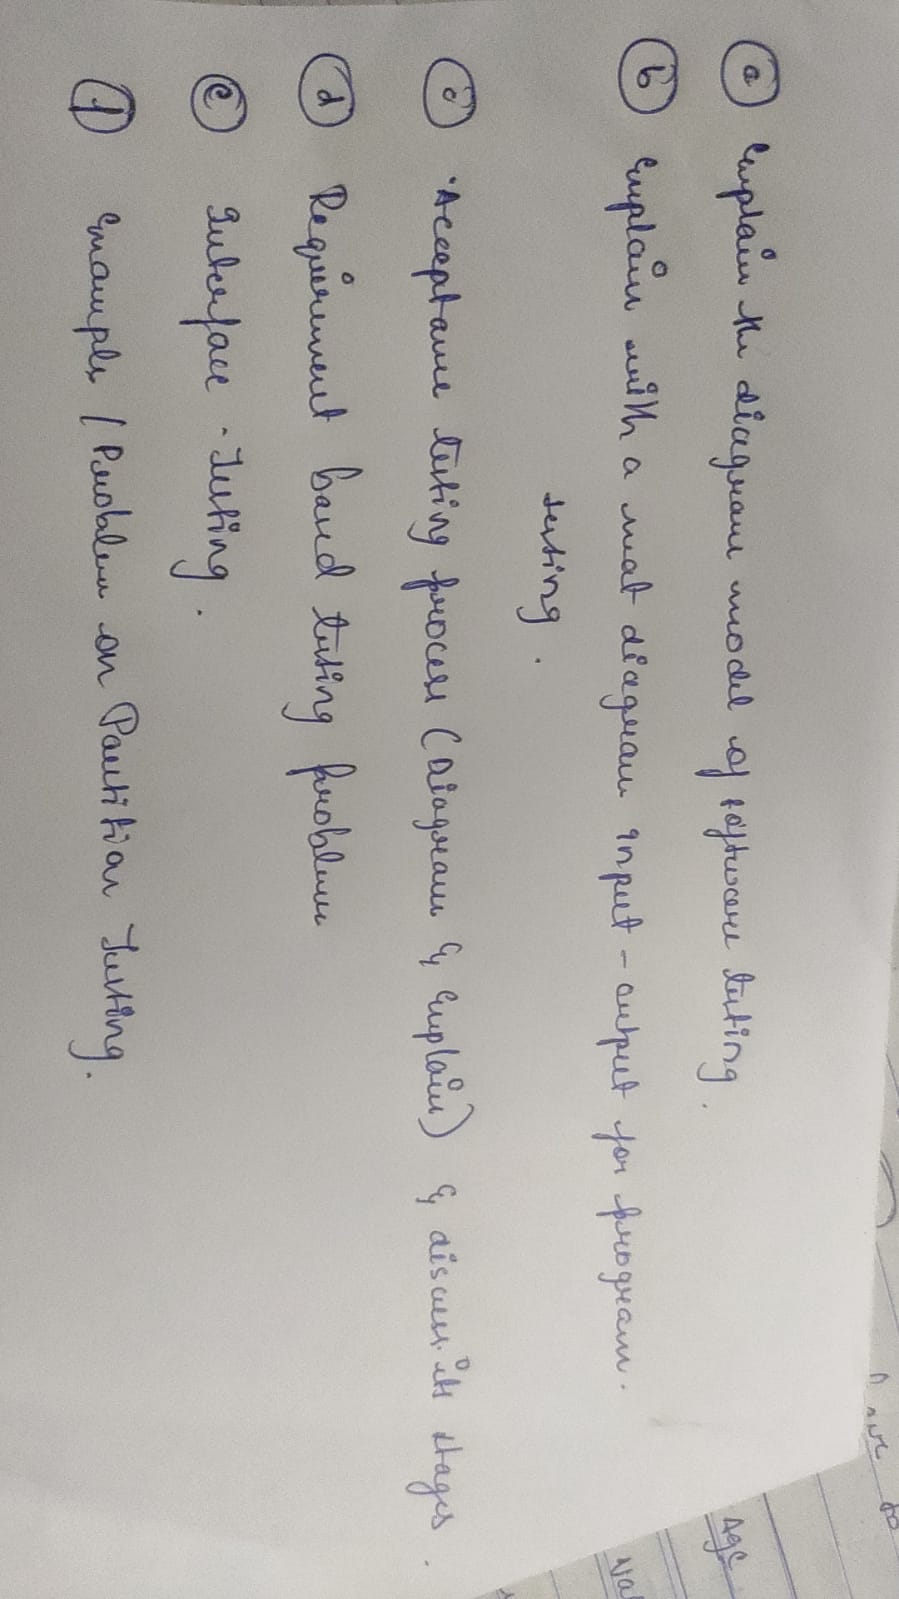 Age
Val
(a) Explain the diagram model of software testing.
(b) Explain with a neat diagram input - output for program.
testing.
(c) Acceptance testing process (Diagram & Explain) & discuss its stages.
(d) Requirement based testing problem
(e) Interface - Testing.
(f) Example / Problem on Partition Testing.